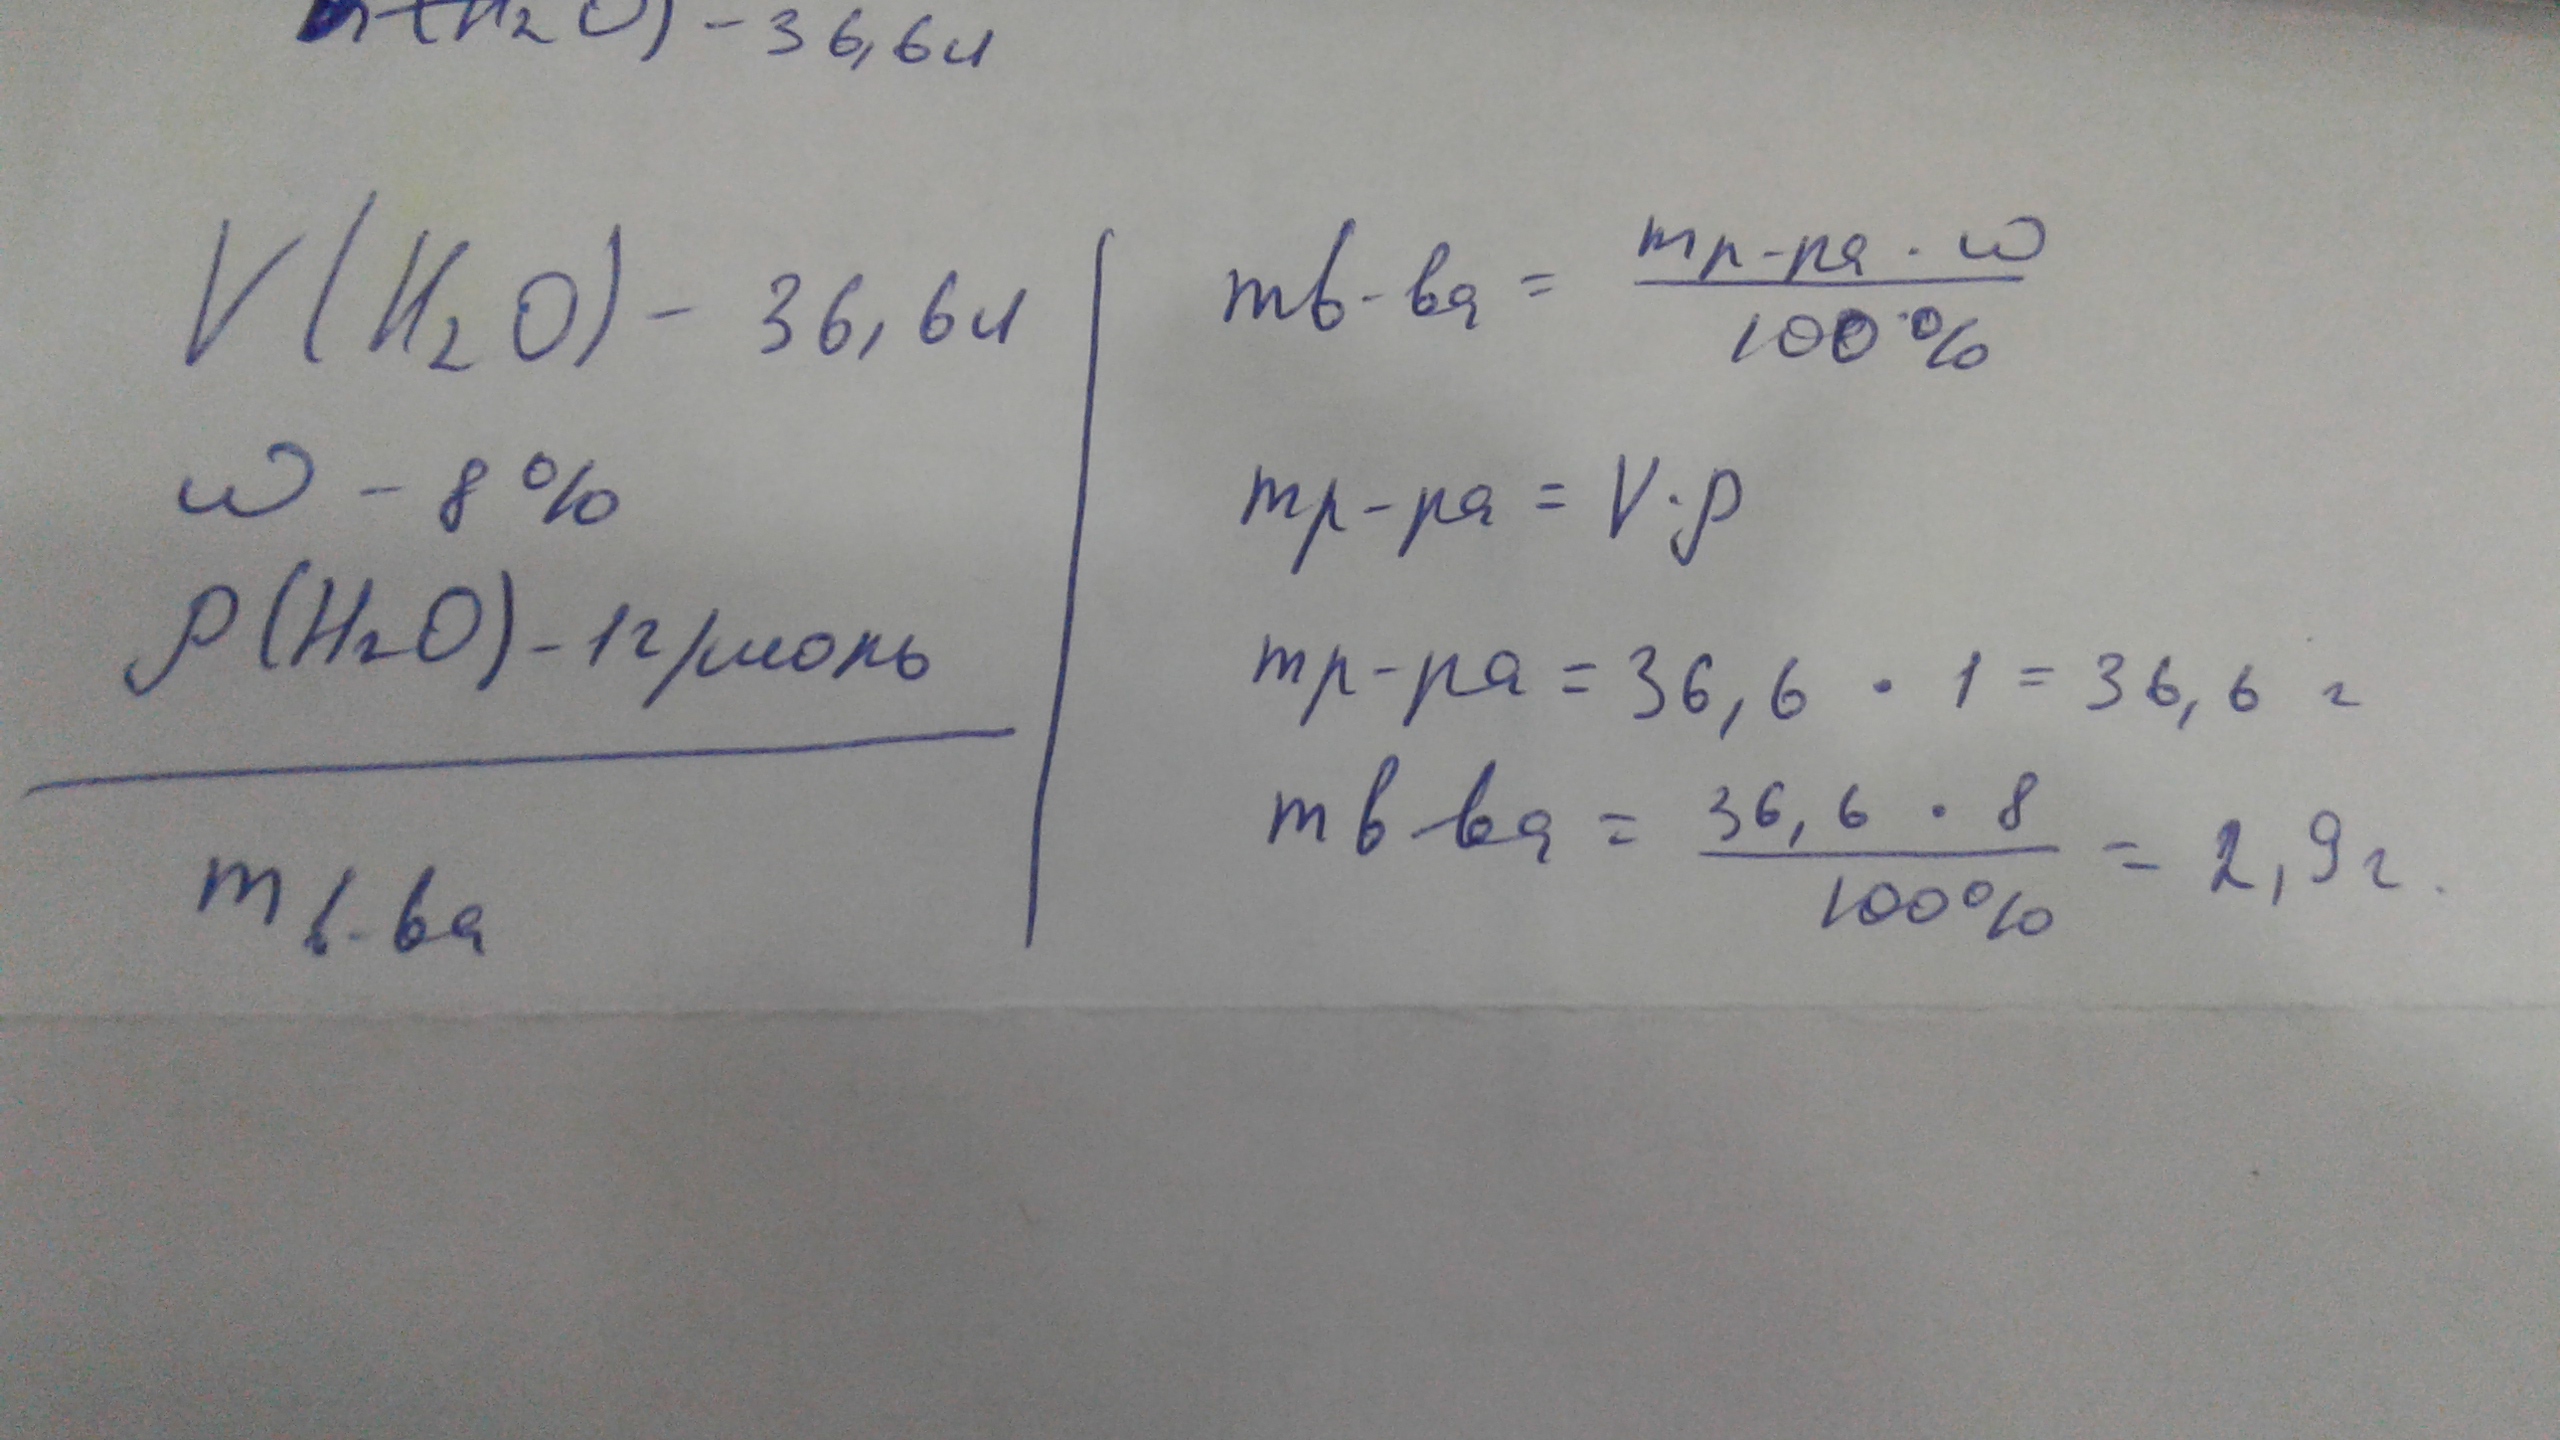 (H₂O) - 36,6л
V(H₂O) - 36,6л
ω - 8%
ρ(H₂O) - 1г/моль
m в-ва
m в-ва = mр-ра · ω / 100%
mр-ра = V·ρ
mр-ра = 36,6 · 1 = 36,6 г
m в-ва = 36,6 · 8 / 100% = 2,9г.